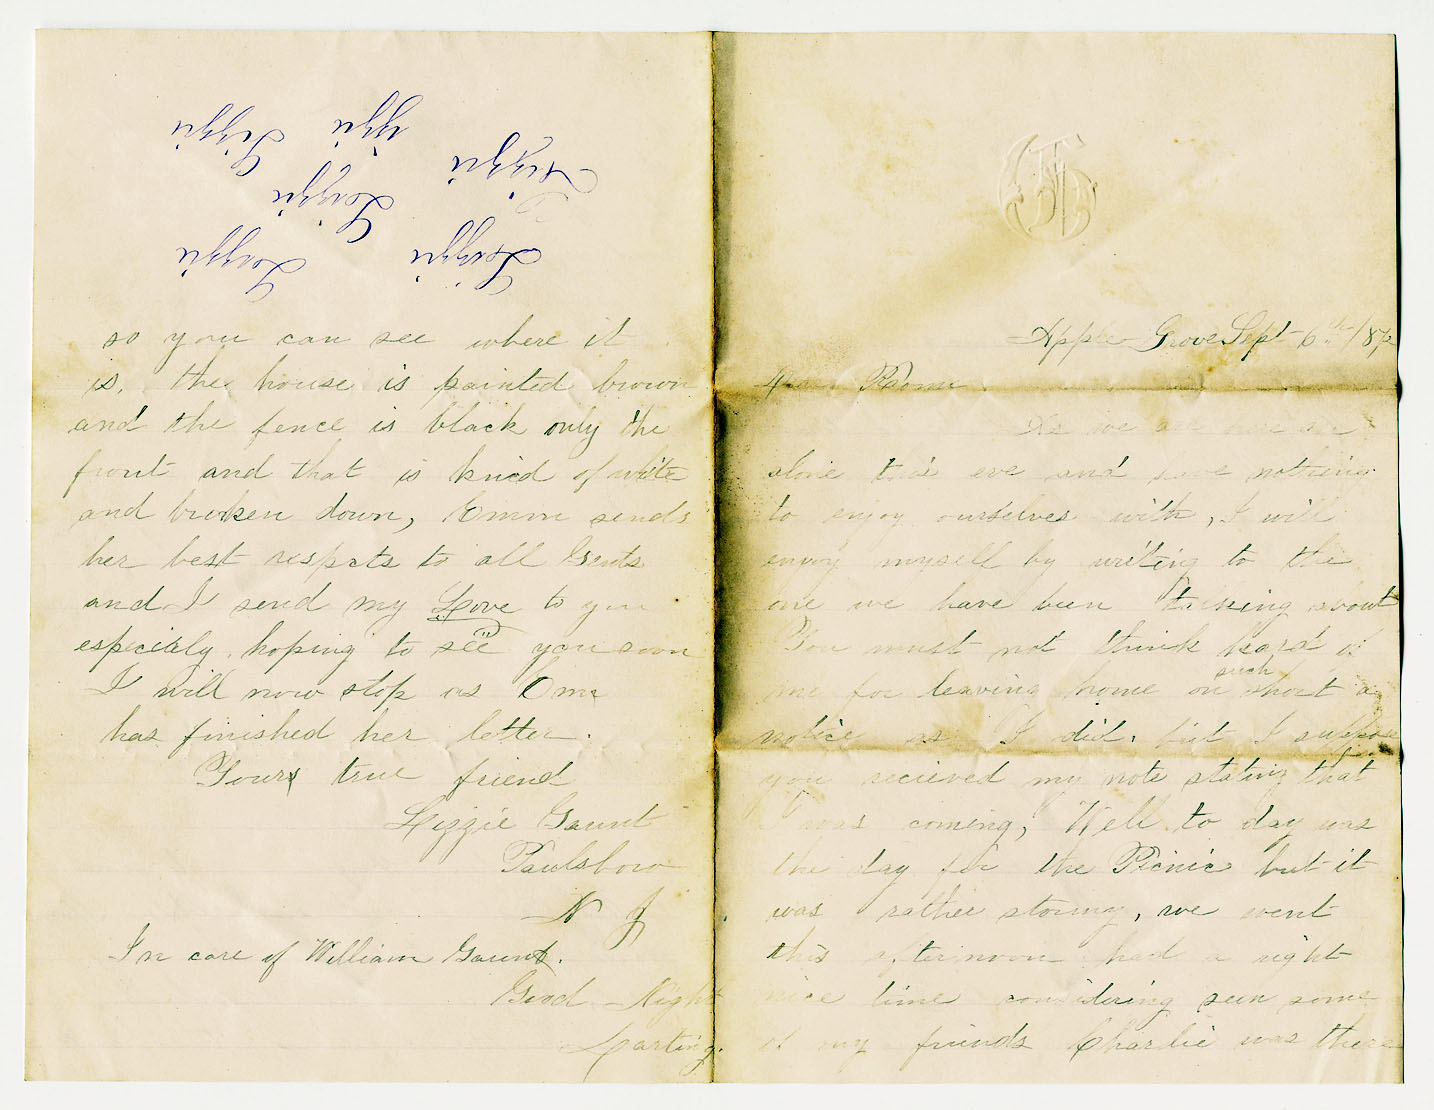 Apple Grove Sept 6th /87
Dear Rome
As we are here all
alone this eve and have nothing
to enjoy ourselves with, I will
enjoy myself by writing to the
one we have been talking about
You must not think hard of
me for leaving home on such short a
notice as I did. but I suppose
you recieved my note stating that
I was coming, Well to day was
the day for the Picnic but it
was rather stormy, we went
this afternoon had a right
nice time considering seen some
of my friends Charlie was there
so you can see where it
is. the house is painted brown
and the fence is black only the
front and that is kind of white
and broken down, Emm sends
her best respects to all Gents
and I send my Love to you
especialy. hoping to see you soon
I will now stop as Em
has finished her letter.
Yours true friend
Lizzie Gaunt
Paulsboro
N J
In care of William Gaunt.
Good Night
Lizzie
Lizzie
Lizzie
Lizzie
Lizzie
Lizzie